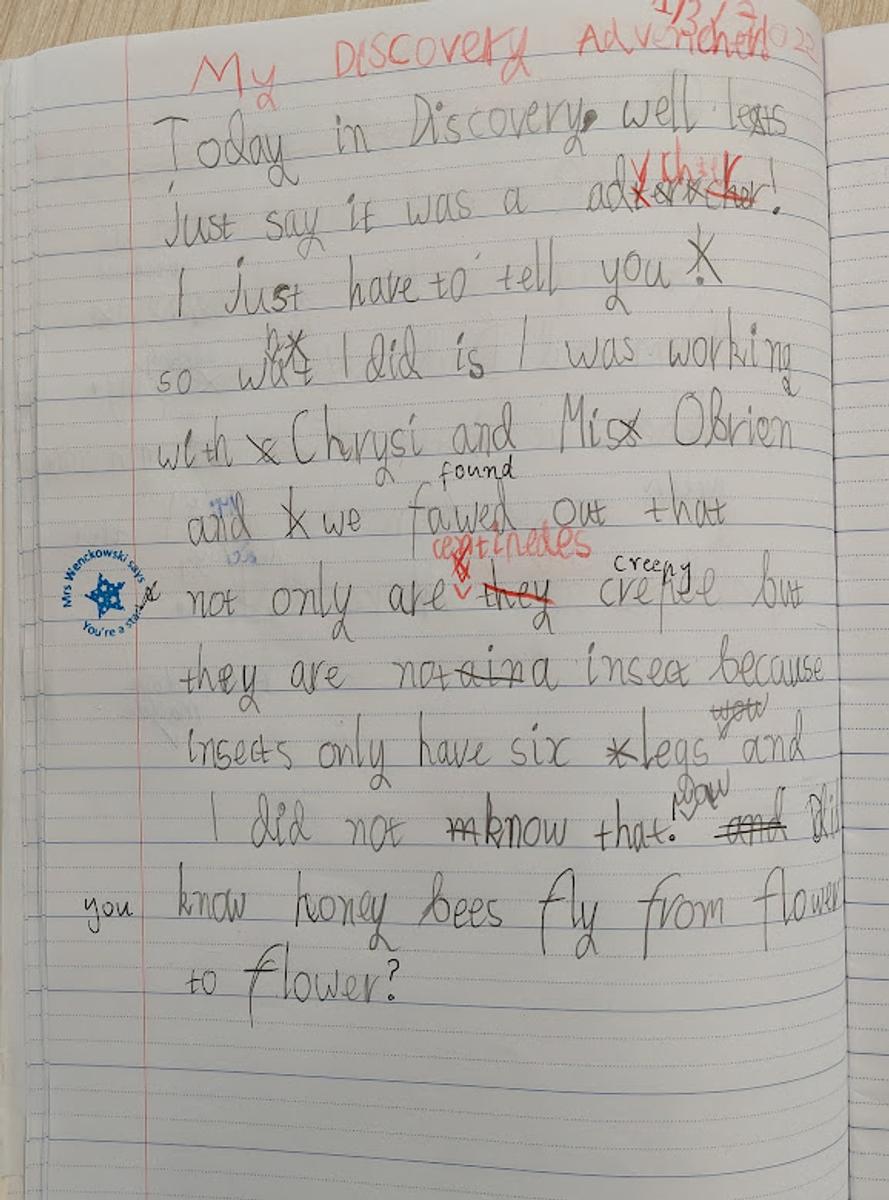 1/3/2023
My Discovery Advercher!
Today in Discovery, well lets
just say it was a advcher!
I just have to tell you!
so what I did is I was working
with Chrysi and Mis OBrien
found
and we fawed out that
centipedes creepy
not only are they crepee but
they are not a insect because
wow
insects only have six legs and
wow
I did not know that. and Did
you know honey bees fly from flower
to flower?
Mrs Wenckowski says
You're a star